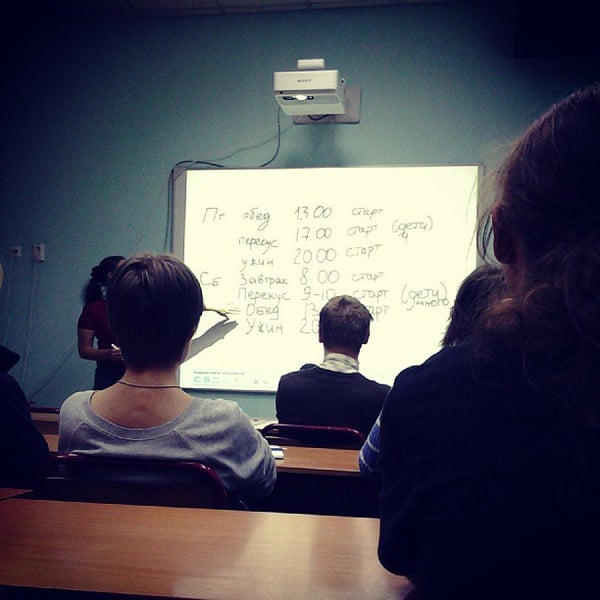 SONY
Пт обед 13.00 старт
перекус 17.00 старт (дети)
ужин 20.00 старт
Сб Завтрак 8.00 старт
Перекус 9-10 старт (дети)
Обед 13 старт много
Ужин 20